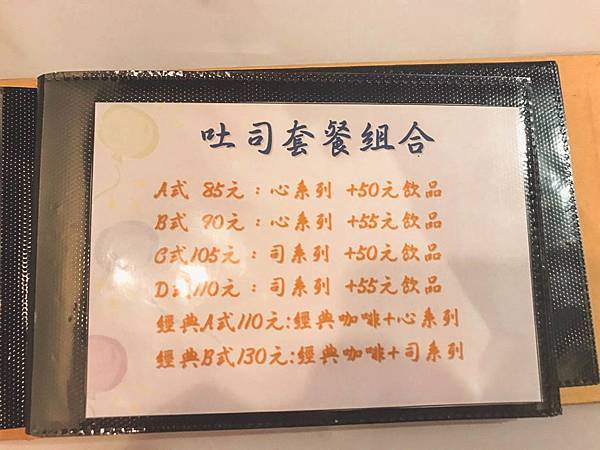 吐司套餐組合
A式 85元：心系列 +50元飲品
B式 90元：心系列 +55元飲品
C式105元：司系列 +50元飲品
D式110元：司系列 +55元飲品
經典A式110元:經典咖啡+心系列
經典B式130元:經典咖啡+司系列